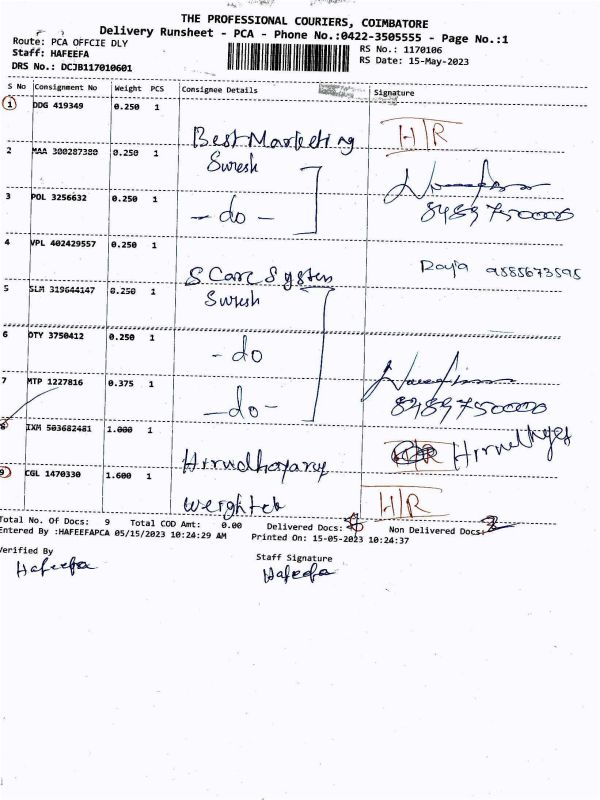 THE PROFESSIONAL COURIERS, COIMBATORE
Delivery Runsheet - PCA - Phone No.:0422-3505555 - Page No.:1
Route: PCA OFFCIE DLY
RS No.: 1170106
Staff: HAFEEFA
RS Date: 15-May-2023
DRS No.: DCJB117010601
S No Consignment No Weight PCS Consignee Details Signature
1 DDG 419349 0.250 1
Best Marketing H/R
2 MAA 300287380 0.250 1
Suresh
3 POL 3256632 0.250 1
- do - 8489750000
4 VPL 402429557 0.250 1
S Care System Raja 9585673595
5 SLM 319644147 0.250 1
Suresh
6 OTY 3750412 0.250 1
- do
7 MTP 1227816 0.375 1
- do - 8489750000
8 IXM 503682481 1.000 1
H/R
9 CGL 1470330 1.600 1
H/R
Total No. Of Docs: 9 Total COD Amt: 0.00 Delivered Docs: Non Delivered Docs:
Entered By :HAFEEFAPCA 05/15/2023 10:24:29 AM Printed On: 15-05-2023 10:24:37
Verified By Staff Signature
Hafeefa Hafeefa